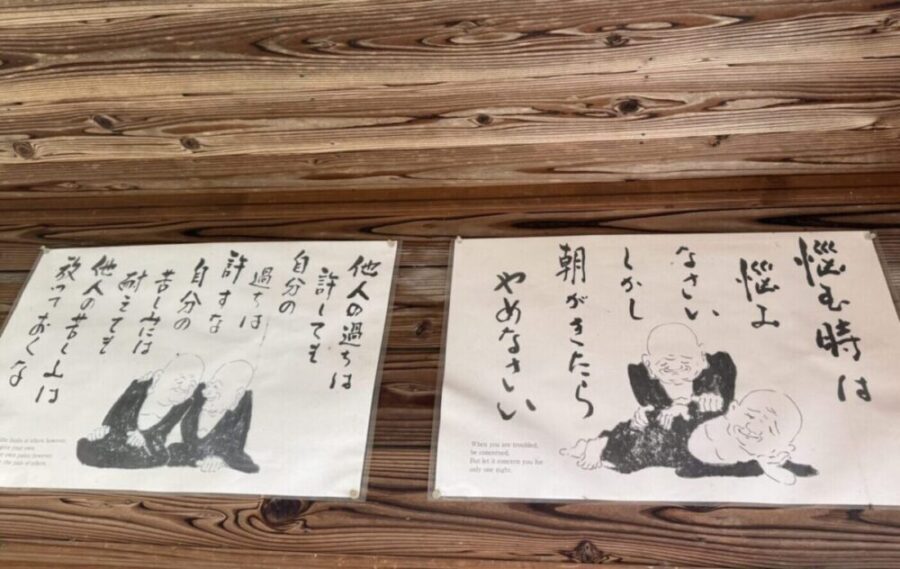 他人の過ちは
許しても
自分の
過ちは
許すな
自分の
苦しみには
耐えても
他人の苦しみは
放っておくな
faults of others, however,
give your own.
own pains however,
the pain of others.
悩む時は
悩み
なさい
しかし
朝がきたら
やめなさい
When you are troubled,
be concerned.
But let it concern you for
only one night.